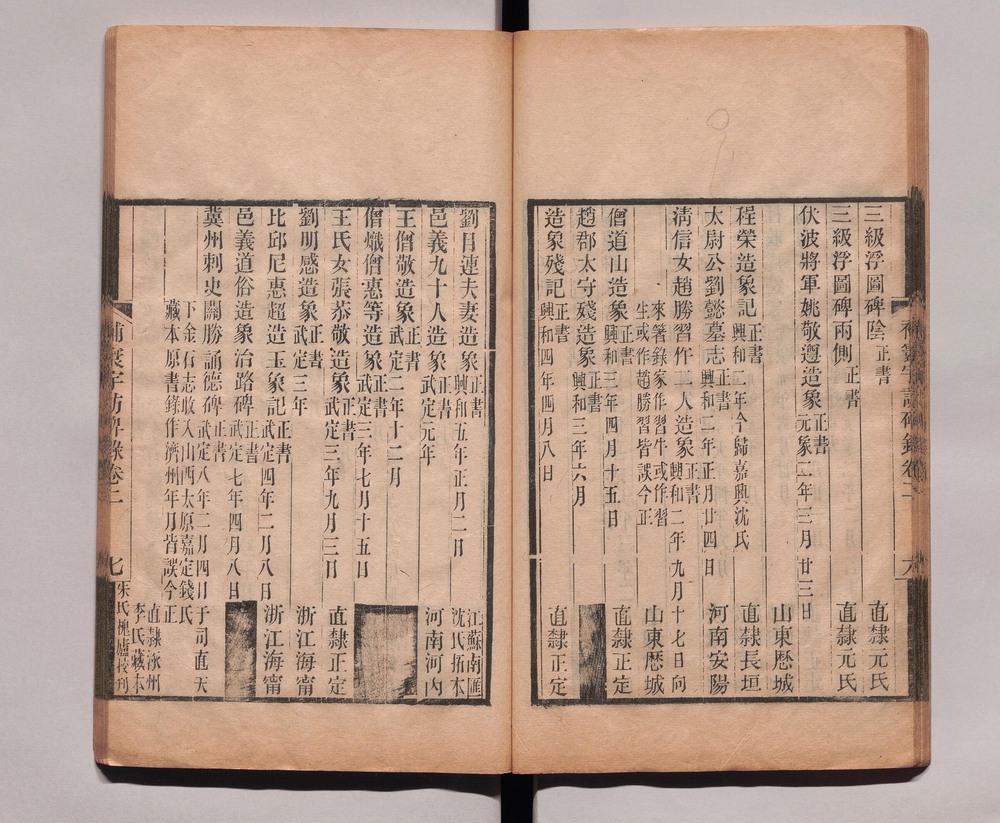 三級浮圖碑陰 正書 直隸元氏
三級浮圖碑兩側 正書 直隸元氏
伏波將軍姚敬遵造象 正書 元象二年三月廿三日 山東歷城
程榮造象記 正書 興和二年今歸嘉興沈氏 直隸長垣
太尉公劉懿墓志 正書 興和二年正月廿四日 河南安陽
清信女趙勝習仵二人造象 正書 興和二年九月十七日向 山東歷城
來箸錄家作習牛或作習
生或作趙勝習皆誤今正
僧道山造象 正書 興和三年四月十五日 直隸正定
趙郡太守殘造象 正書 興和三年六月
造象殘記 正書 興和四年四月八日 直隸正定
劉目連夫妻造象 正書 興和五年正月二日 江蘇南匯沈氏拓本
邑義九十人造象 正書 武定元年 河南河內
王僧敬造象 正書 武定二年十二月
僧熾僧惠等造象 正書 武定三年七月十五日
王氏女張恭敬造象 正書 武定三年九月三日 直隸正定
劉明感造象 正書 武定三年 浙江海甯
比邱尼惠超造玉象記 正書 武定四年二月八日 浙江海甯
邑義道俗造象治路碑 正書 武定七年四月八日
冀州刺史關勝誦德碑 正書 武定八年二月四日于司直天
下金石志收入山西太原嘉定錢氏
藏本原書錄作濟州年月皆誤今正
直隸
李氏藏本
補寰宇訪碑錄卷二 七
朱氏槐廬校刊